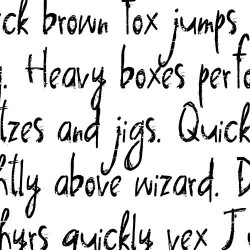 ck brown fox jumps
. Heavy boxes perfo
ltzes and jigs. Quick
htly above wizard. D
hyrs quickly vex J